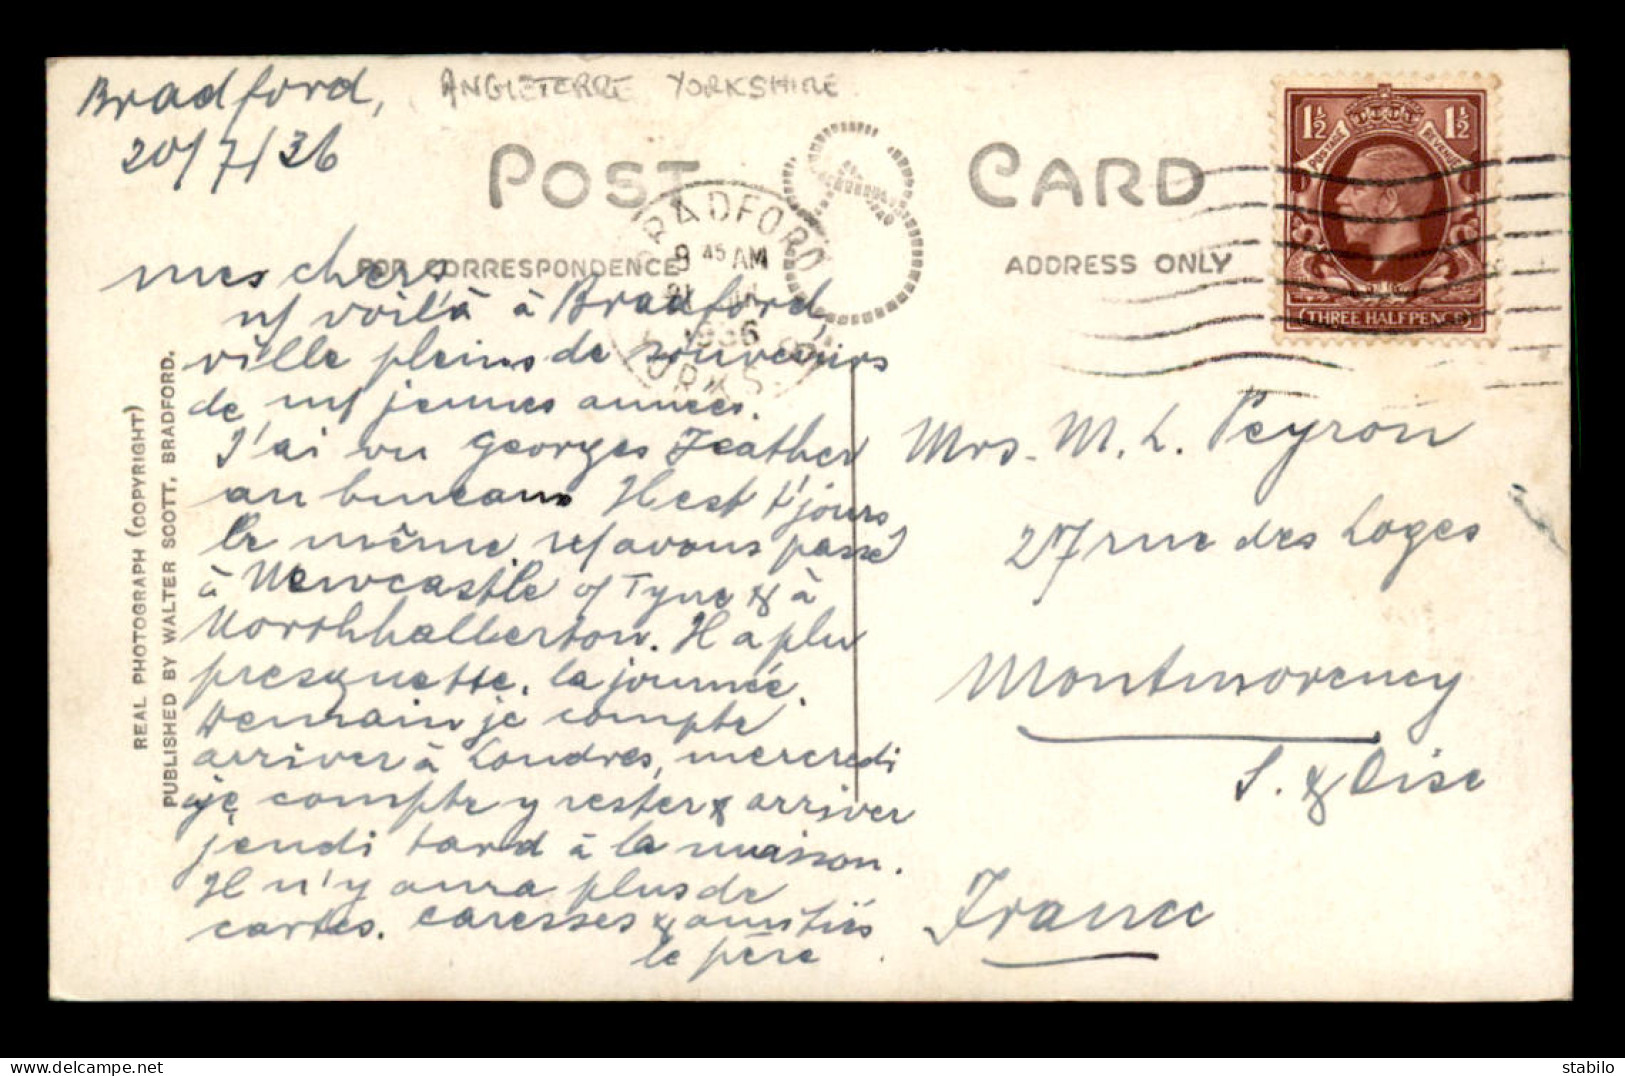 Bradford,
20/7/36
ANGLETERRE YORKSHIRE
POST CARD
FOR CORRESPONDENCE
ADDRESS ONLY
BRADFORD
8 45 AM
21 JUL
1936
YORKS.
POSTAGE REVENUE
1½ 1½
THREE HALFPENCE
REAL PHOTOGRAPH (COPYRIGHT)
PUBLISHED BY WALTER SCOTT, BRADFORD.
mes chers
voilà à Bradford,
ville pleins de souvenirs
de jeunes années.
J'ai vu Georges Feather
au bureau. Il est t'jours
le même. avons passé
à Newcastle o/ Tyne & à
Northhallerton. Il a plu
presque tte. la journée.
Demain je compte
arriver à Londres, mercredi
je compte y rester & arriver
jeudi tard à la maison.
Il n'y aura plus de
cartes. caresses & amitiés
le père
Mrs. M. L. Peyron
27 rue des Loges
Montmorency
S. & Oise
France
stabilo | www.delcampe.net